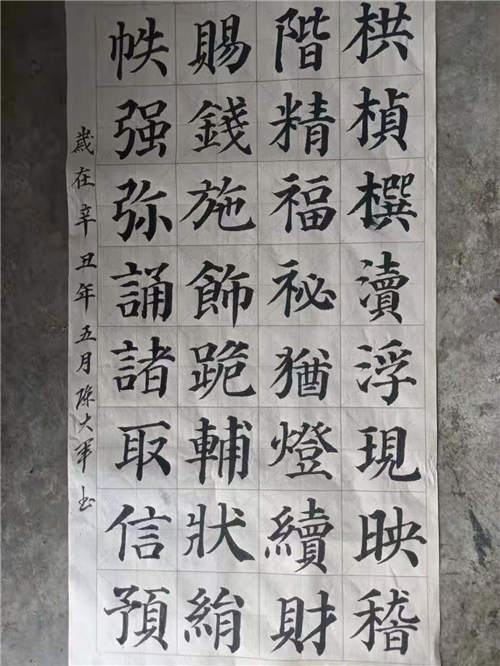 栱楨撰瀆浮現映稽
階精福祕猶燈續財
賜錢施飾跪輔狀絹
帙强弥誦諸取信預
歲在辛丑年五月陈大军书